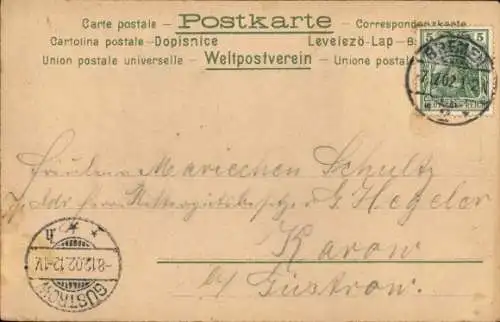 Carte postale – Postkarte – Correspondenzkarte
Cartolina postale – Dopisnice Levelezö-Lap – B
Union postale universelle – Weltpostverein – Unione postal
5 5
BREMEN
7.12.02.
DEUTSCHES REICH
Fräulein Mariechen Schultz
Adr. Herrn Rittergutsbesitzer G. Hegeler
Karow
b/ Güstrow.
-8.12.02.12-1V.
GÜSTROW